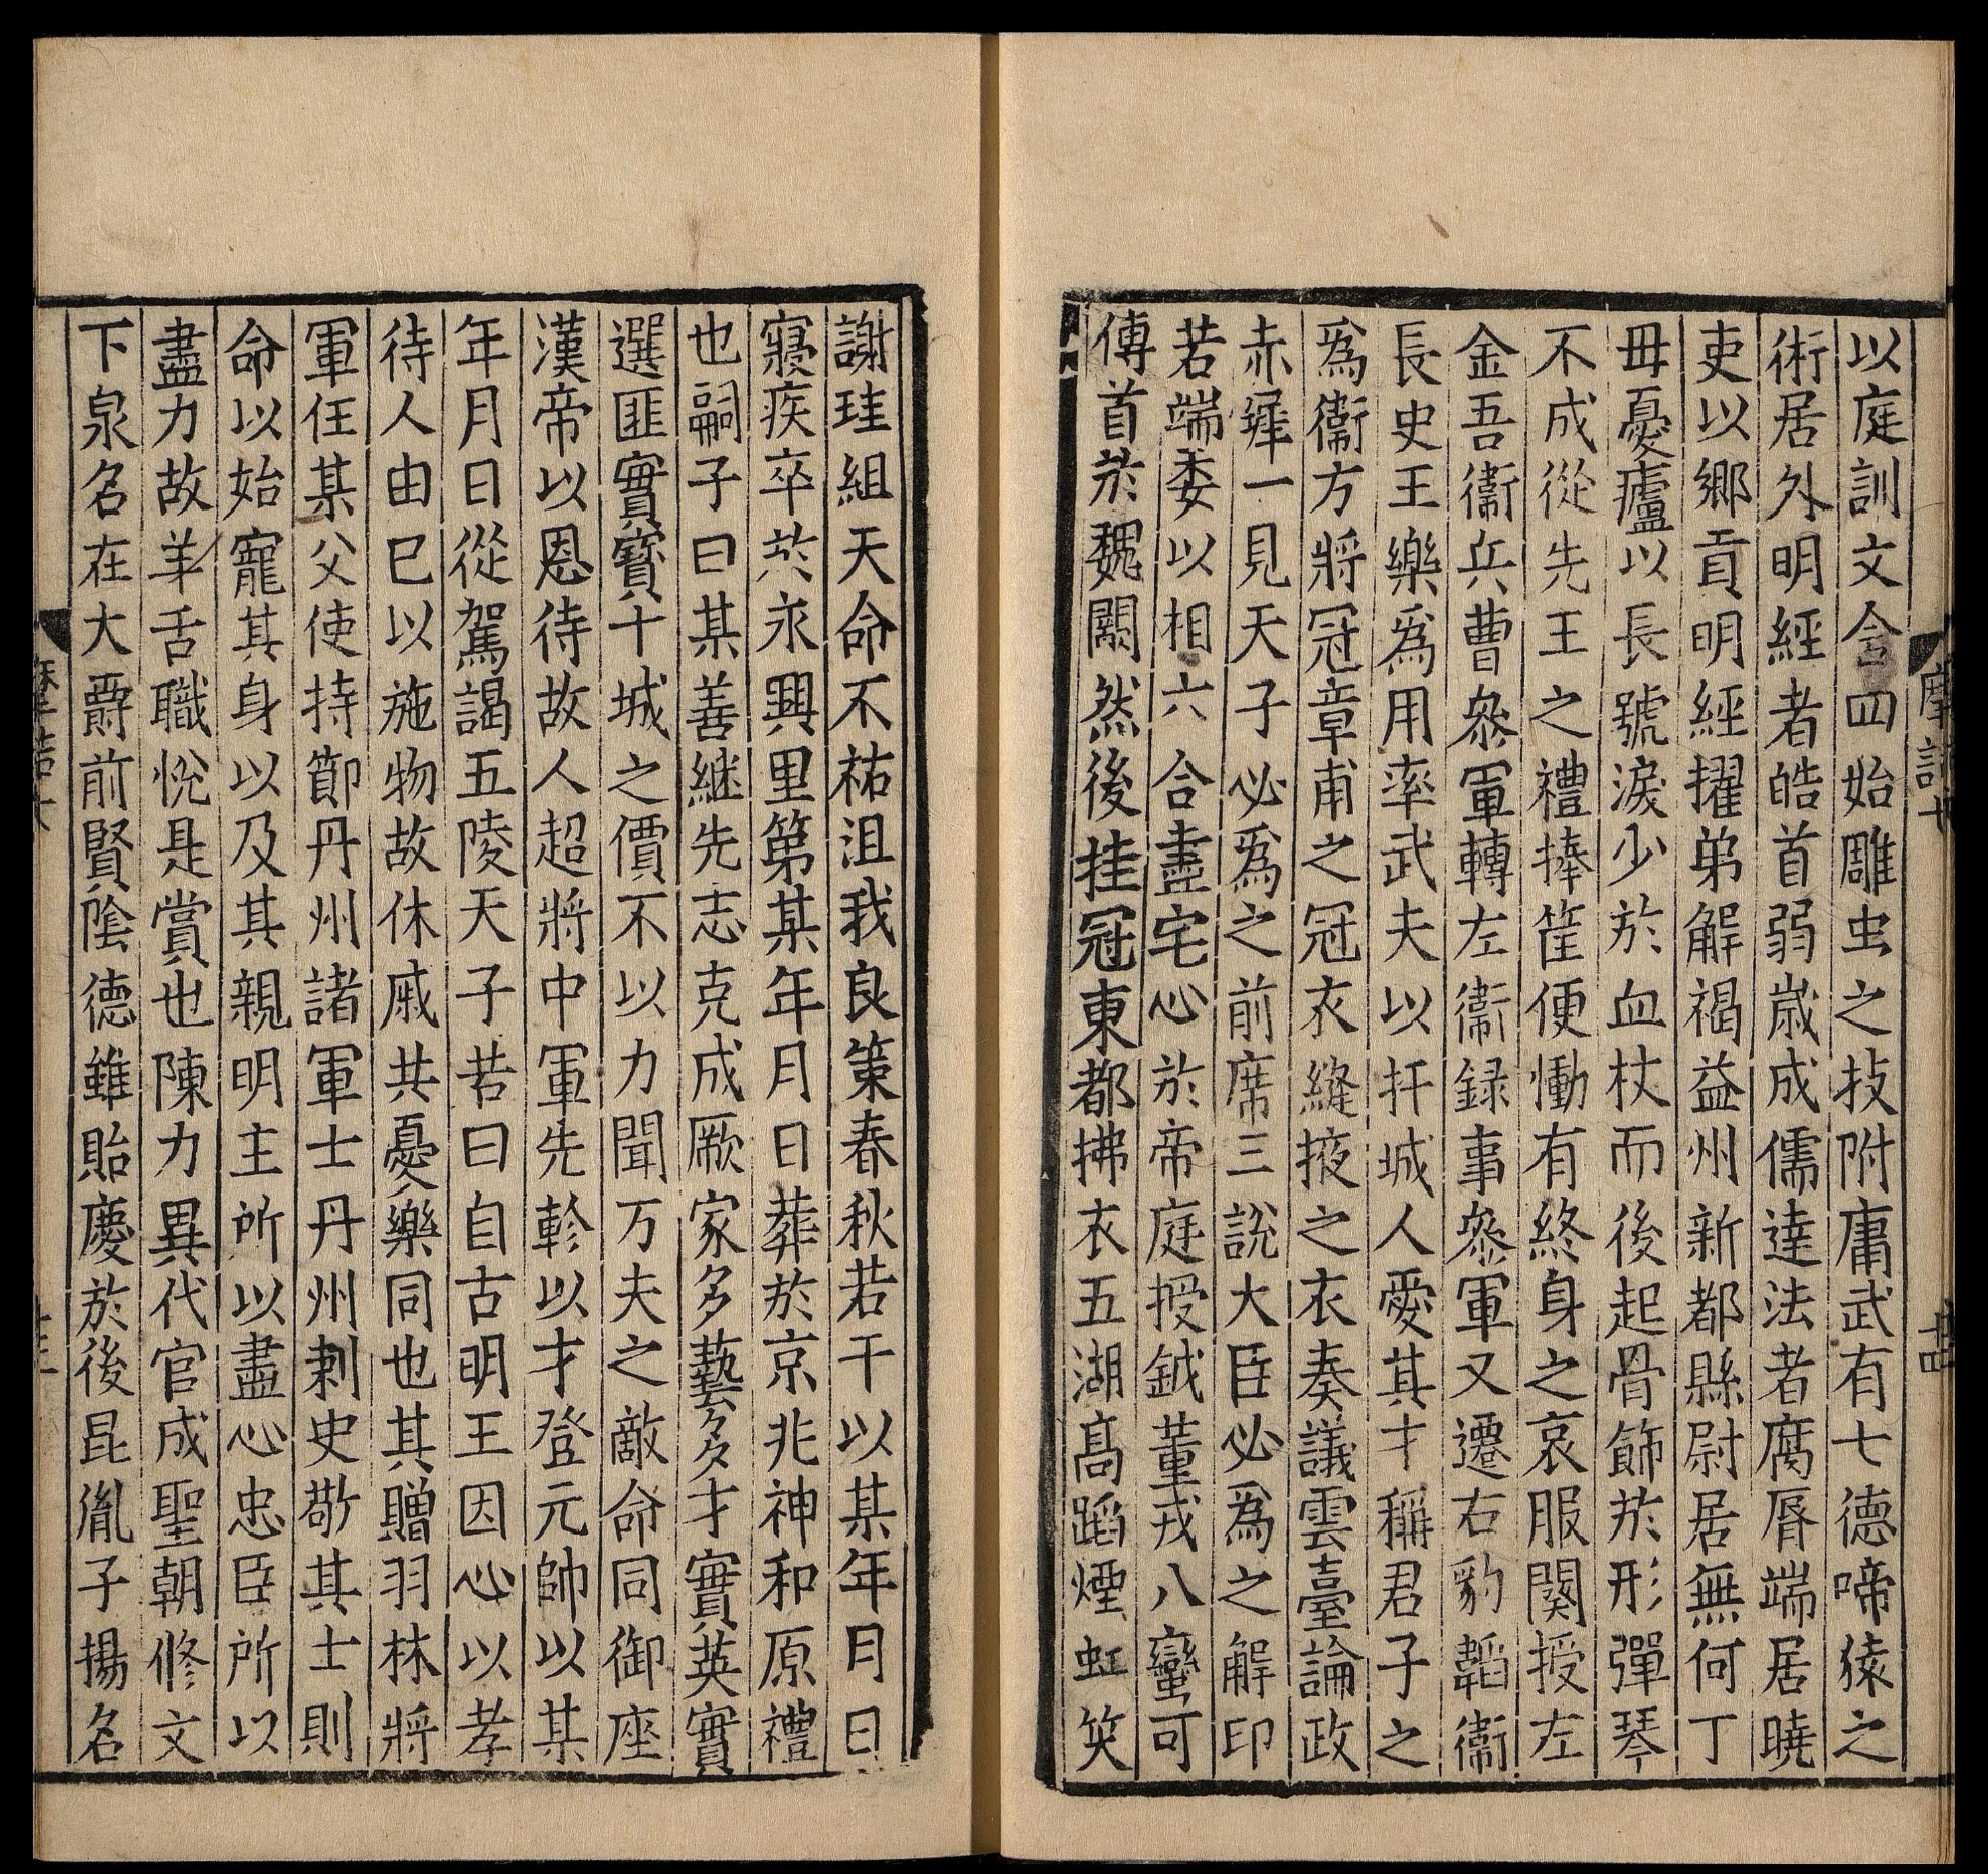 以庭訓文含四始雕虫之技附庸武有七德啼猿之
術居外明經者皓首弱歲成儒達法者腐脣端居曉
吏以鄉貢明經擢弟解褐益州新都縣尉居無何丁
毋憂壚以長號淚少於血杖而後起骨餙於形彈琴
不成從先王之禮捧筐便慟有終身之哀服闋授左
金吾衞兵曹叅軍轉左衞録事叅軍又遷右豹韜衞
長史王樂爲用率武夫以扞城人愛其才稱君子之
爲衞方將冠章甫之冠衣縫掖之衣奏議雲臺論政
赤墀一見天子必爲之前席三說大臣必爲之解印
若端委以相六合盡宅心於帝庭授鉞董戎八蠻可
傅首於魏闕然後挂冠東都拂衣五湖髙蹈煙虹笑
謝珪組天命不祐沮我良策春秋若干以某年月日
寢疾卒於永興里第某年月日葬於京兆神和原禮
也嗣子曰某善継先志克成厥家多藝多才實英實
選匪實寶十城之價不以力聞万夫之敵命同御座
漢帝以恩待故人超將中軍先軫以才登元帥以某
年月日從駕謁五陵天子若曰自古明王因心以孝
待人由巳以施物故休戚共憂樂同也其贈羽林將
軍任某父使持節丹州諸軍士丹州刺史敬其士則
命以始寵其身以及其親明主所以盡心忠臣所以
盡力故羊舌職悅是賞也陳力異代官成聖朝修文
下泉名在大爵前賢陰德雖貽慶於後昆胤子揚名